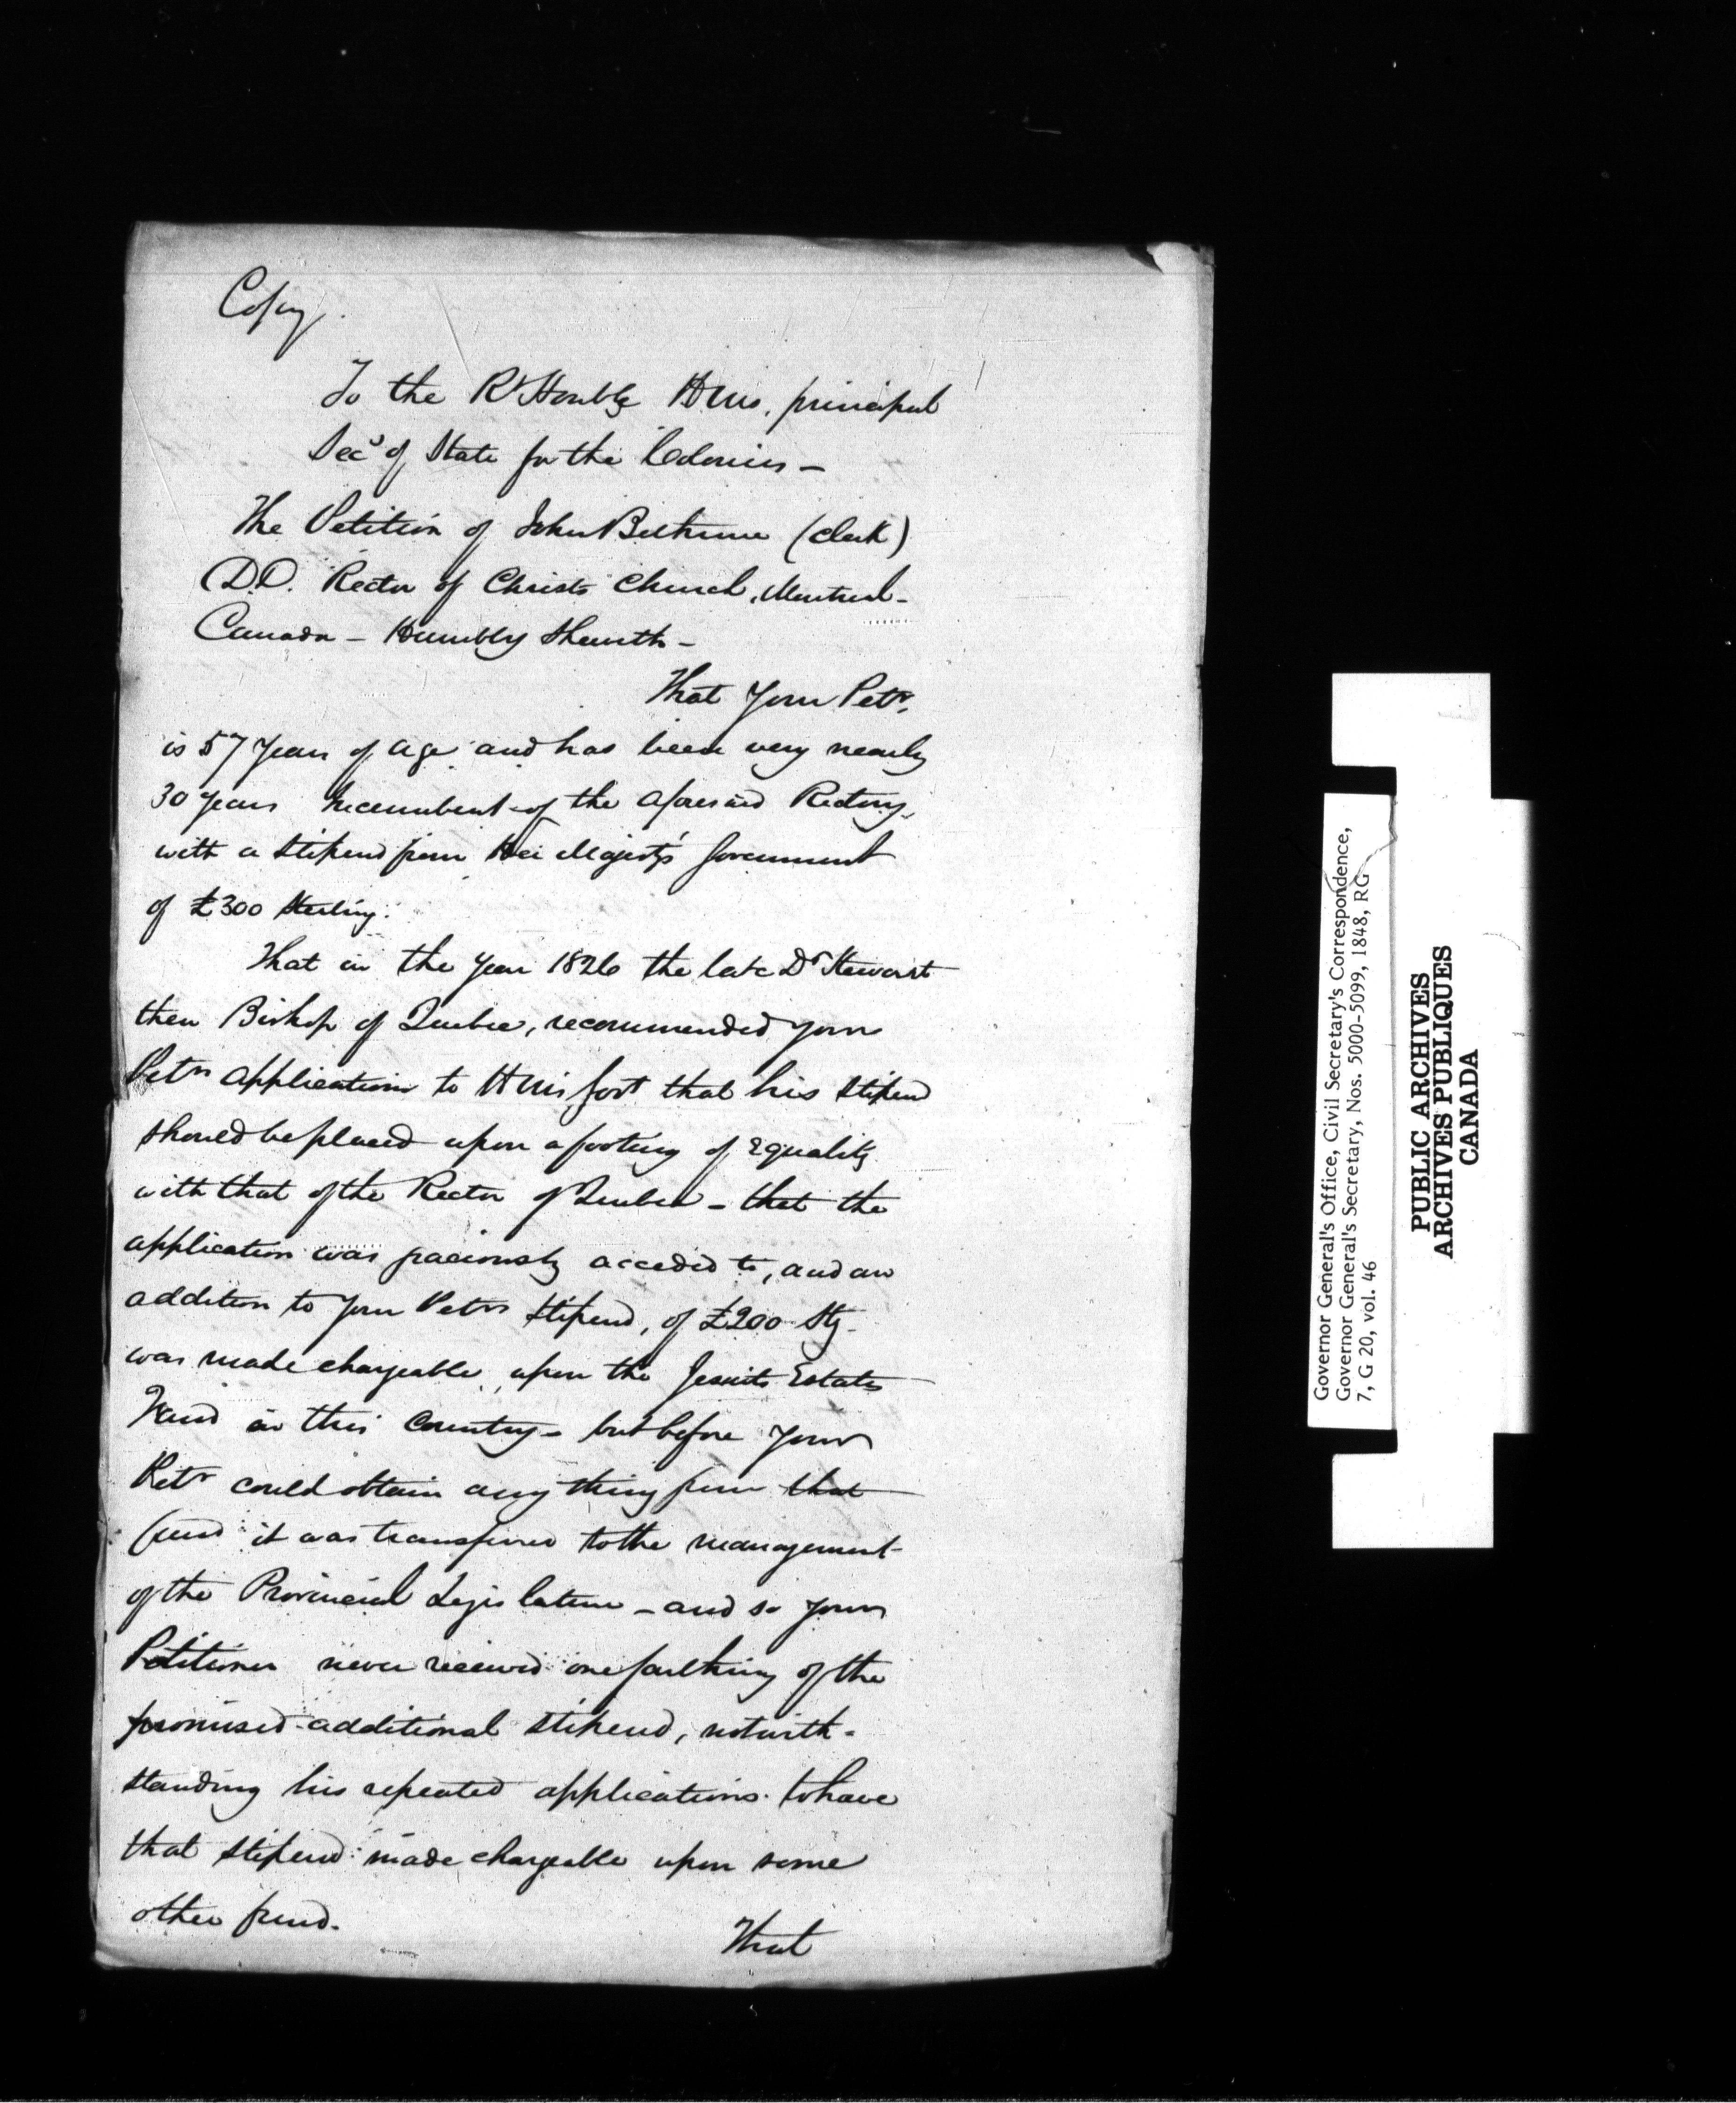 Copy.
To the Rt Honble HMs. principal
Secy of State for the Colonies –
The Petition of John Bethune (clerk)
D.D. Rector of Christs Church, Montreal –
Canada – Humbly Sheweth –
That Your Petr.
is 57 Years of age and has been very nearly
30 years Incumbent of the aforesaid Rectory,
with a Stipend from Her Majesty's Government
of £300 Sterling.
That in the Year 1826 the late Dr Stewart
then Bishop of Quebec, recommended your
Petrs application to HMs Govt that his Stipend
should be placed upon a footing of equality
with that of the Rector of Quebec – that the
application was graciously acceded to, and an
addition to your Petrs Stipend, of £200 Stg –
was made chargeable upon the Jesuits Estates
Fund in this Country – but before your
Petr could obtain any thing from that
fund it was transferred to the management
of the Provincial Legislature – and so your
Petitioner never received one farthing of the
promised additional Stipend, notwith-
standing his repeated applications to have
that Stipend made chargeable upon some
other fund.
That
Governor General's Office, Civil Secretary's Correspondence,
Governor General's Secretary, Nos. 5000-5099, 1848, RG
7, G 20, vol. 46
PUBLIC ARCHIVES
ARCHIVES PUBLIQUES
CANADA